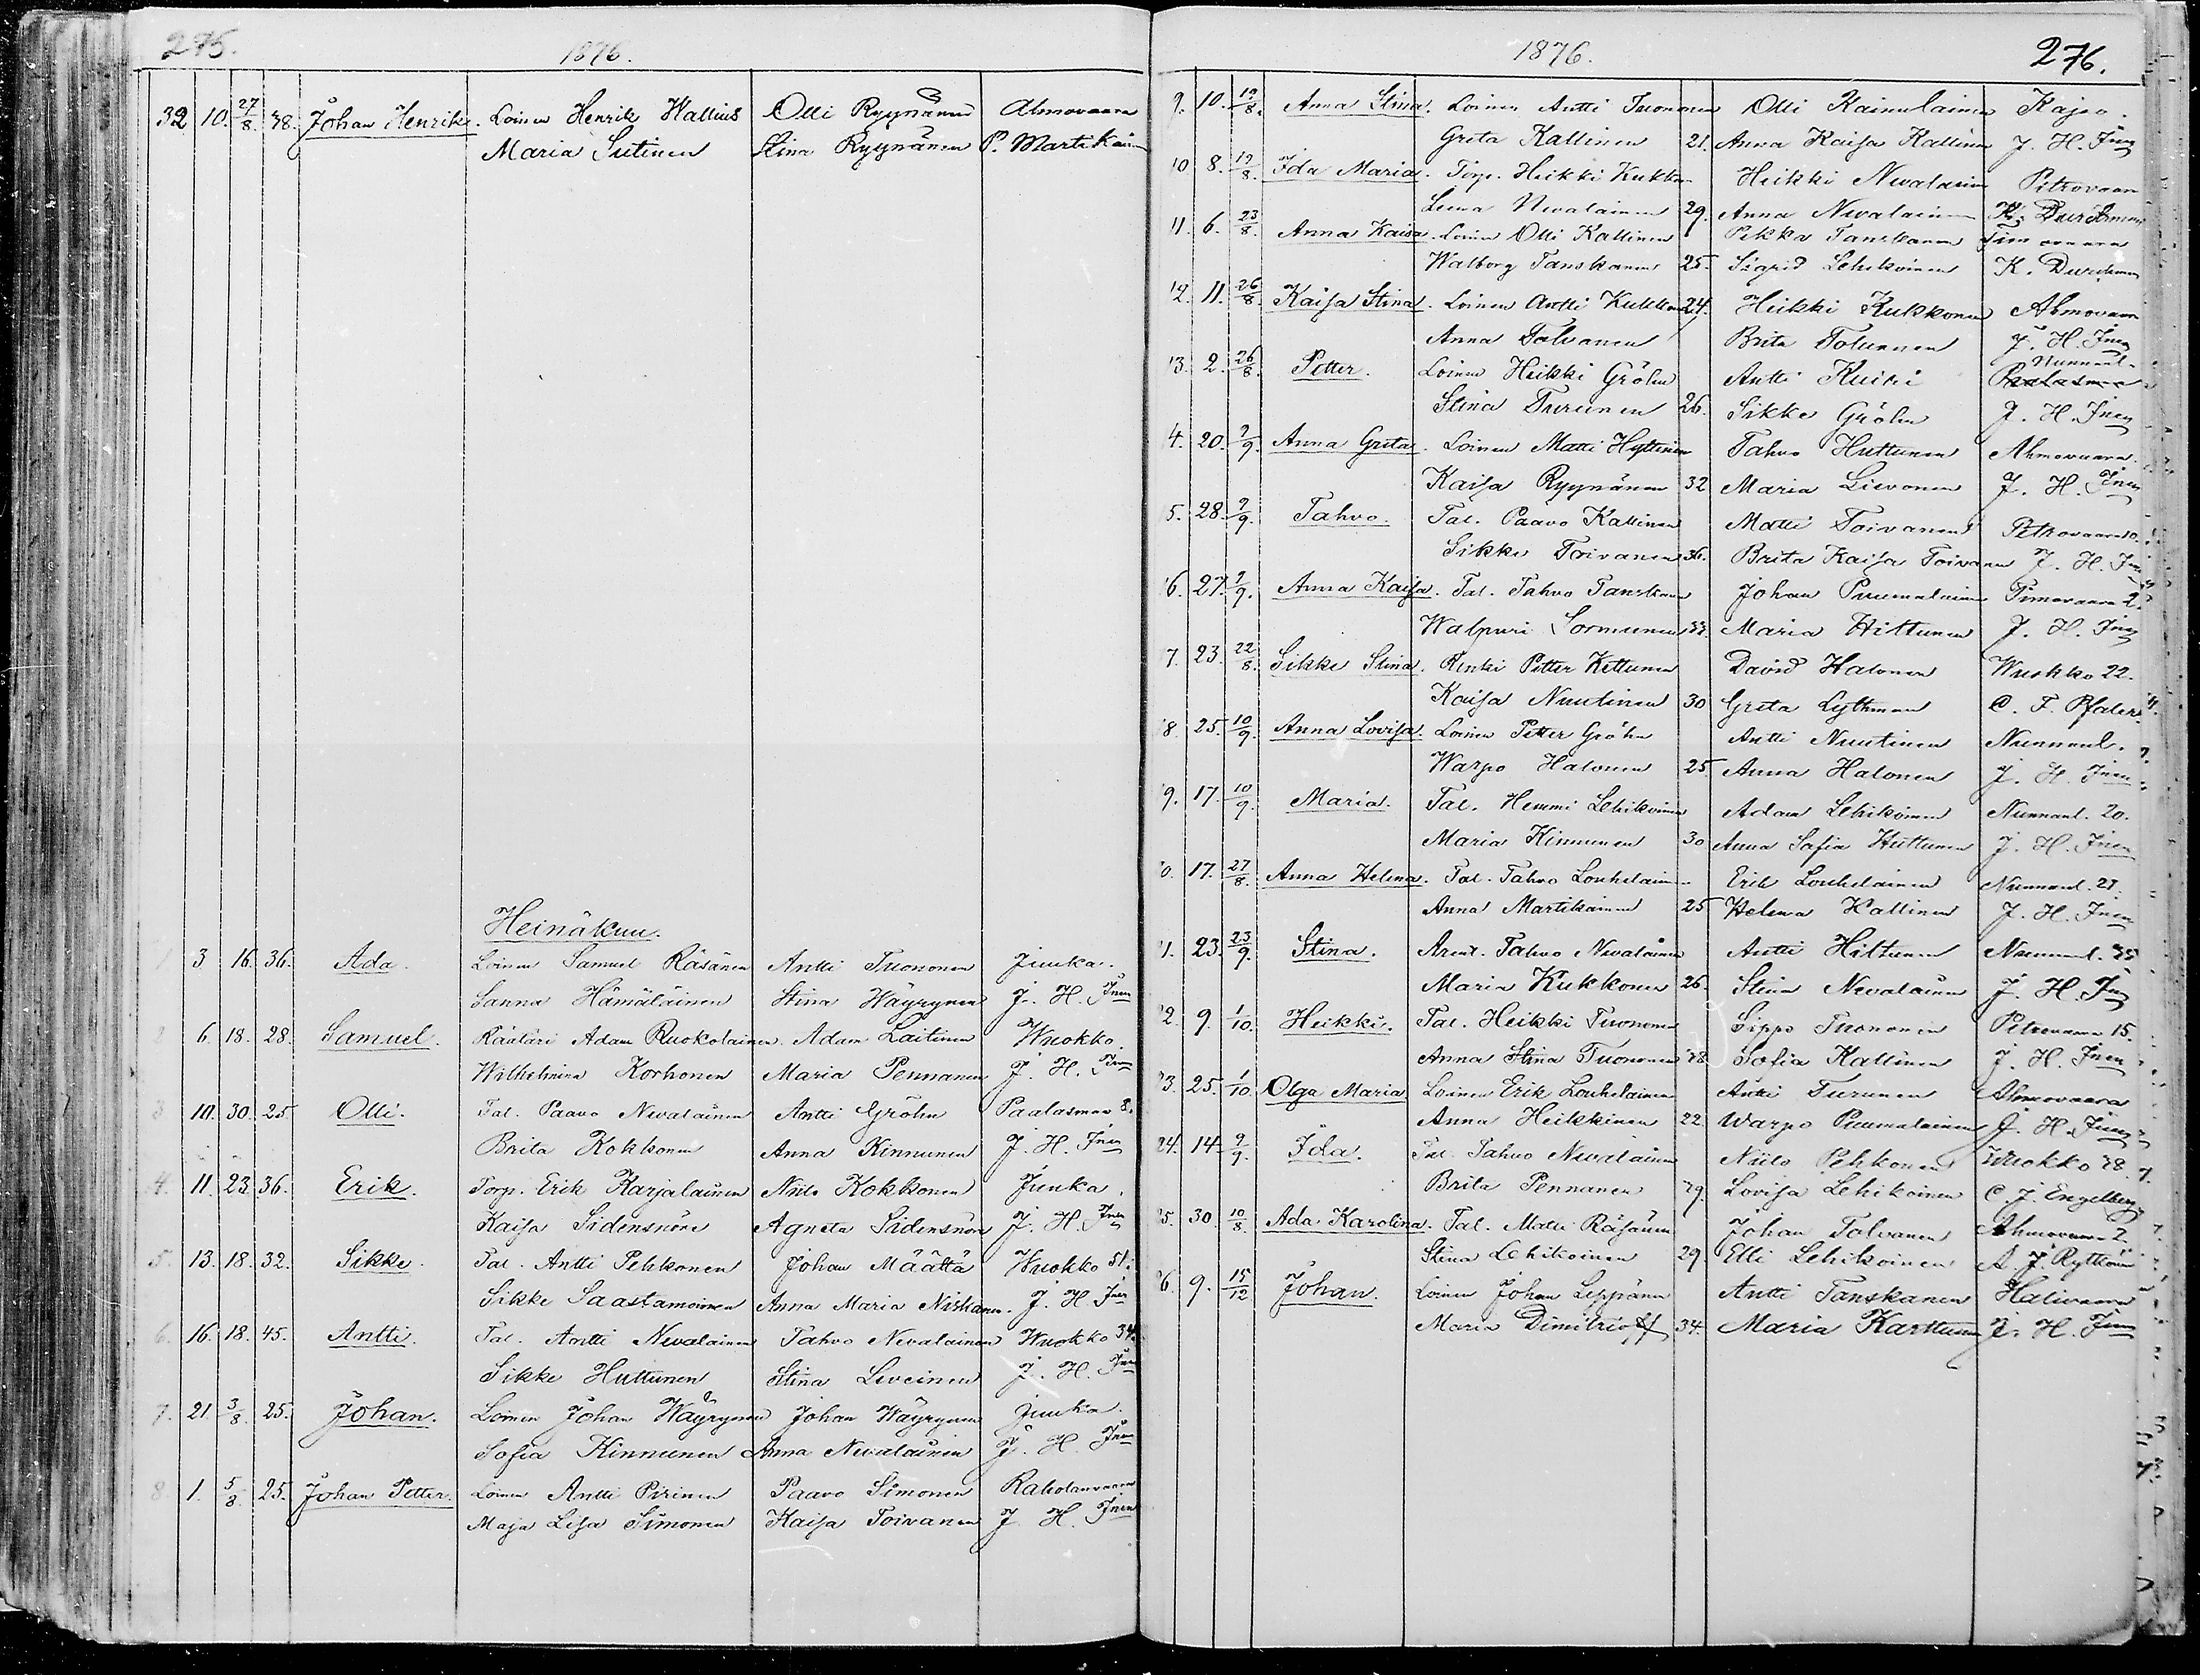 275.
1876.
32 10. 27/8. 38. Johan Henrik. Loinen Henrik Wallius Olli Ryynänen Ahmovaara
Maria Sutinen Stina Ryynänen P. Martikain
Heinäkuu.
3 16. 36. Ada. Loinen Samuel Räsänen Antti Tuononen Juuka.
Sanna Hämäläinen Stina Wäyrynen J. H. Inen
6. 18. 28. Samuel. Räätäri Adam Ruokolainen. Adam Laitinen Wuokko.
Wilhelmina Korhonen Maria Pennanen J. H. Inen
3 10. 30. 25 Olli. Tal. Paavo Nevalainen Antti Gröhn Paalasmaa 8.
Brita Kokkonen Anna Kinnunen J. H. Inen
4. 11. 23. 36. Erik. Torp. Erik Karjalainen Niilo Kokkonen Juuka.
Kaisa Sidensnöre Agneta Sidensnöre J. H. Inen
5. 13. 18. 32. Sikke. Tal. Antti Pehkonen Johan Määttä Wuokko 51.
Sikke Saastamoinen Anna Maria Niskanen. J. H. Inen
6. 16. 18. 45. Antti. Tal. Antti Nevalainen Tahvo Nevalainen Wuokko 34.
Sikke Huttunen Stina J. H. Inen
7. 21 3/8. 25. Johan. Loinen Johan Wäyrynen Johan Wäyrynen Juuka.
Sofia Kinnunen Anna Nevalainen J. H. Inen
8 1. 5/8. 25. Johan Petter. Loinen Antti Pirinen Paavo Simonen Raholanvaara
Maja Lisa Simonen Kaisa Toivanen J. H. Inen
1876.
276.
9. 10. 19/8. Anna Stina. Loinen Antti Tuononen Olli Kainulainen Kajoo.
Greta Kallinen 21. Anna Kaisa Kallinen J. H. Inen
10 8. 19/8. Ida Maria. Torp. Heikki Kukko Heikki Nevalainen Petrovaara
Leena Nevalainen 29. Anna Nevalainen K. Durchman
11. 6. 23/8. Anna Kaisa. Loinen Olli Kallinen Pekka Tanskanen Timovaara
Walborg Tanskanen 25. Sigrid Lehikoinen K. Durchman
12. 11. 26/8. Kaisa Stina. Loinen Antti Kukkonen 24. Heikki Kukkonen Ahmovaara
Anna Tolvanen Brita Tolvanen J. H. Inen
Nunnanl.
13. 2. 26/8. Petter. Loinen Heikki Gröhn Antti Paalasmaa
Stina Turunen 26. Sikke Gröhn J. H. Inen
4. 20. 9/9. Anna Greta. Loinen Matti Hyttinen Tahvo Huttunen Ahmovaara.
Kaisa Ryynänen 32 Maria Lievonen J. H. Inen
5. 28. 9/9. Tahvo. Tal. Paavo Kallinen Matti Toivanen Petrovaara 10.
Sikke Toivanen 36. Brita Kaisa Toivanen J. H. Inen
6. 27. 9/9. Anna Kaisa. Tal. Tahvo Tanskanen Johan Puumalainen Timovaara 2.
Walpuri Sormunen 33. Maria Hiltunen J. H. Inen
7. 23. 22/8. Sikke Stina. Renki Petter Kettunen David Halonen Wuokko 22.
Kaisa Nuutinen 30 Greta Lythman C. F. Pfaler.
8. 25. 10/9. Anna Lovisa. Loinen Petter Gröhn Antti Nuutinen Nunnanl.
Warpo Halonen 25 Anna Halonen J. H. Inen
9. 17. 10/9. Maria. Tal. Hemmi Lehikoinen Adam Lehikoinen Nunnanl. 20.
Maria Kinnunen 30 Anna Sofia Huttunen J. H. Inen
0. 17. 27/8. Anna Helena. Tal. Tahvo Louhelainen Erik Louhelainen Nunnanl. 21.
Anna Martikainen 25 Helena Kallinen J. H. Inen
1. 23. 23/9. Stina. Arent. Tahvo Nevalainen Antti Hiltunen Nunnanl. 35
Maria Kukkonen 26. Stina Nevalainen J. H. Inen
2. 9. 1/10. Heikki. Tal. Heikki Tuononen Sippo Tuononen Petrovaara 15.
Anna Stina Tuononen 38 Sofia Kallinen J. H. Inen
23. 25. 1/10. Olga Maria Loinen Erik Louhelainen Antti Turunen Ahmovaara
Anna Heikkinen 22 Warpo Puumalainen J. H. Inen
24. 14. 9/9. Ida. Tal. Tahvo Nevalainen Niilo Pehkonen Wuokko 28
Brita Pennanen 29 Lovisa Lehikoinen C. J. Engelberg
25. 30. 10/8. Ada Karolina. Tal. Matti Räsänen Johan Tolvanen Ahmovaara 2
Stina Lehikoinen 29. Elli Lehikoinen A. J. Ryttönen
26. 9. 15/12 Johan. Loinen Johan Leppänen Antti Tanskanen Halivaara
Maria Dimitrioff 34. Maria Karttunen J. H. Inen